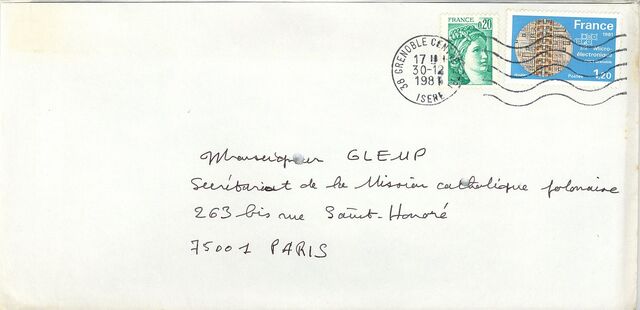 FRANCE 0,20
France
1981
micro-
électronique
Postes 1,20
38 GRENOBLE
17 H
30-12
1981
ISERE
Monseigneur GLEUP
Secrétariat de la Mission catholique polonaise
263 bis rue Saint-Honoré
75001 PARIS